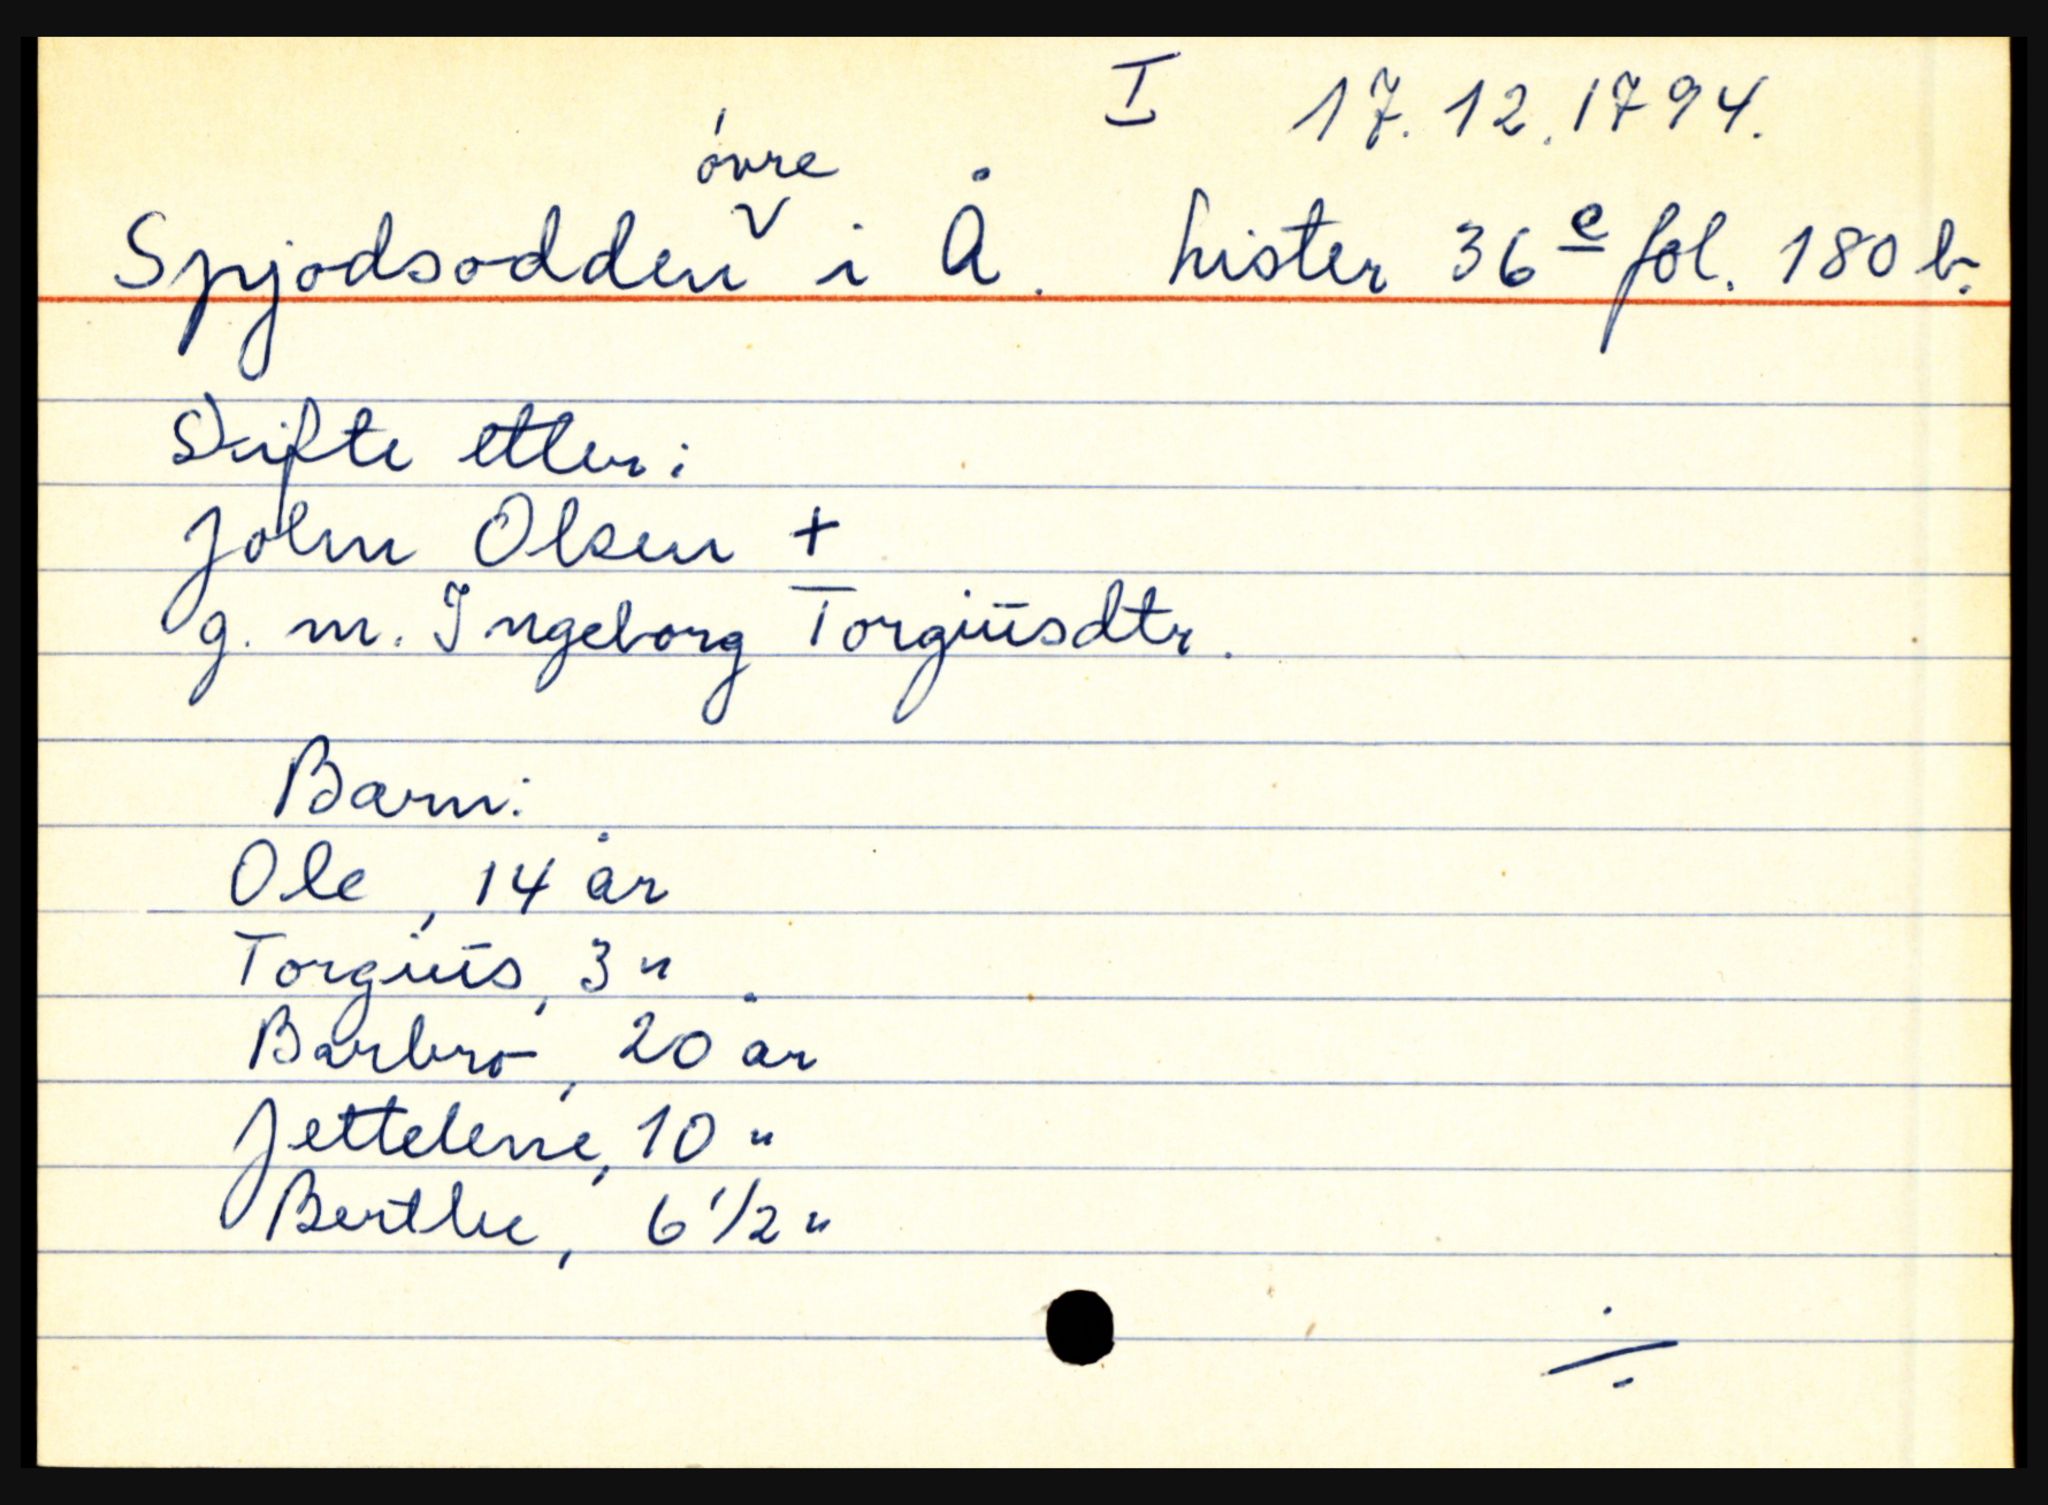 I 17.12.1794.
øvre
Spjodsodden ˅ i Å. Lister 36 e fol. 180 b.
Skifte etter:
John Olsen +
g. m. Ingeborg Torgiūsdtr.
Barn:
Ole, 14 år
Torgiūs, 3 "
Barbro, 20 år
Jettelene, 10 "
Berthe, 6 1/2 "